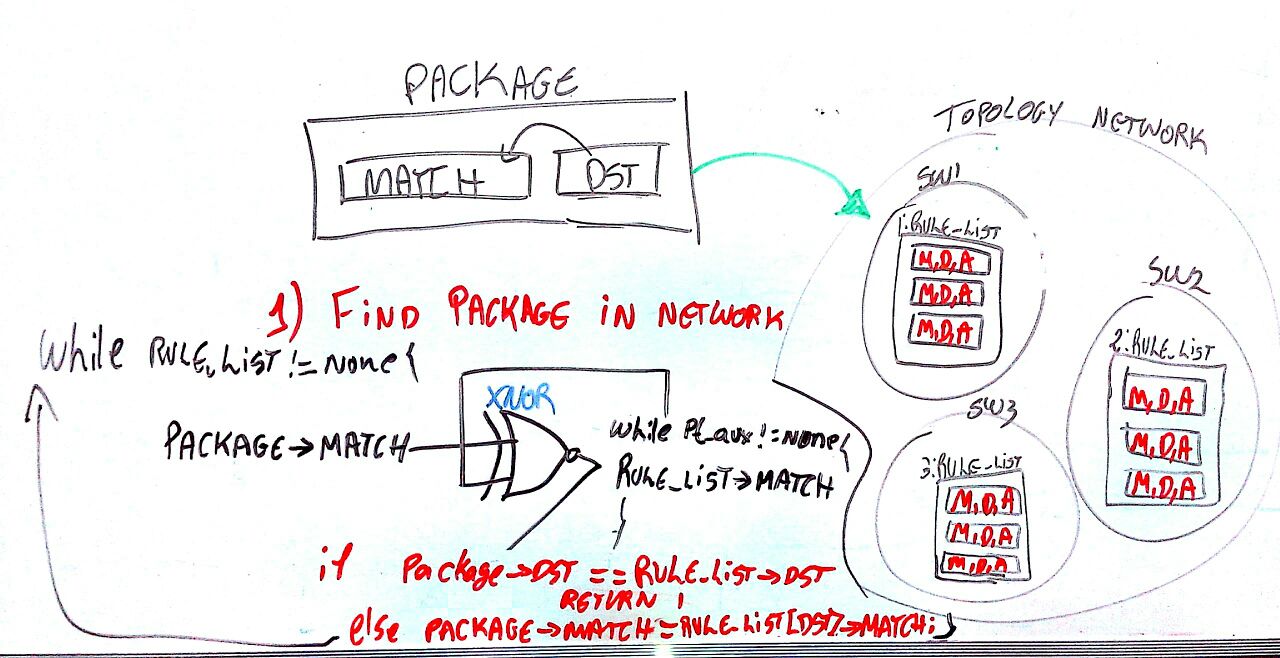 PACKAGE
MATCH
DST
TOPOLOGY NETWORK
SW1
1:RULE_LIST
M,D,A
M,D,A
M,D,A
SW2
2:RULE_LIST
M,D,A
M,D,A
M,D,A
SW3
3:RULE_LIST
M,D,A
M,D,A
M,D,A
1) FIND PACKAGE IN NETWORK
While RULE_LIST != None {
XNOR
PACKAGE→MATCH
While Pt_aux != None {
RULE_LIST→MATCH
}
if Package→DST == RULE_LIST→DST
RETURN 1
else PACKAGE→MATCH = RULE_LIST[DST]→MATCH; }